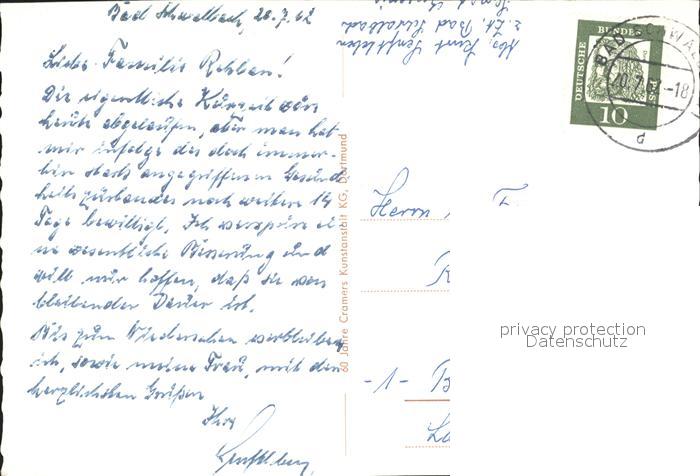 Bad Schwalbach, 20.7.62
Liebe Familie Rehben!
Die eigentliche Kurzeit wäre
heute abgelaufen, aber man hat
mir infolge des doch immer-
hin stark angegriffenen Gesund
heitszustandes noch weitere 14
Tage bewilligt. Ich verspüre ei
ne wesentliche Besserung und
will nur hoffen, daß sie von
bleibender Dauer ist.
Bis zum Wiedersehen verbleiben
ich, sowie meine Frau, mit den
herzlichsten Grüßen
Ihre
60 Jahre Cramers Kunstanstalt KG, Dortmund
Abs. Kurt
z. Zt. Bad Schwalbach
DEUTSCHE BUNDESPOST
10
BAD SCHWALBACH
20.7.62-18
d
Herrn
-1- B
privacy protection
Datenschutz